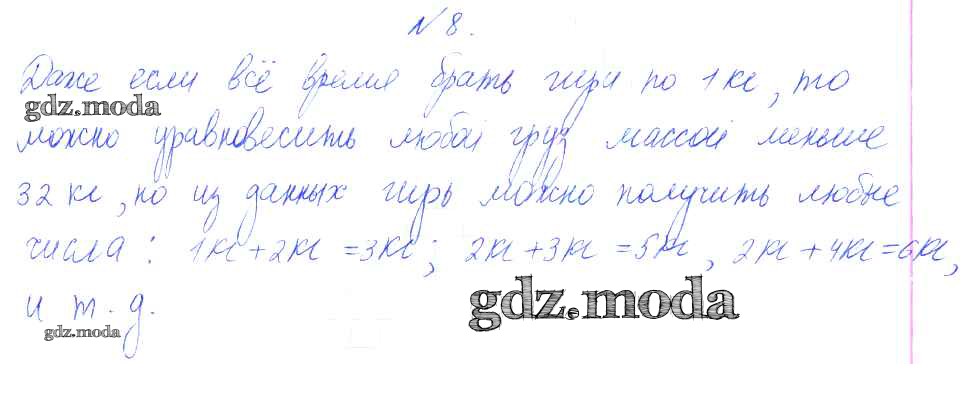 № 8.
Даже если всё время брать гири по 1 кг, то
gdz.moda
можно уравновесить любой груз массой меньше
32 кг, но из данных гирь можно получить любые
числа: 1кг + 2кг = 3кг; 2кг + 3кг = 5кг, 2кг + 4кг = 6кг,
gdz.moda
и т.д.
gdz.moda